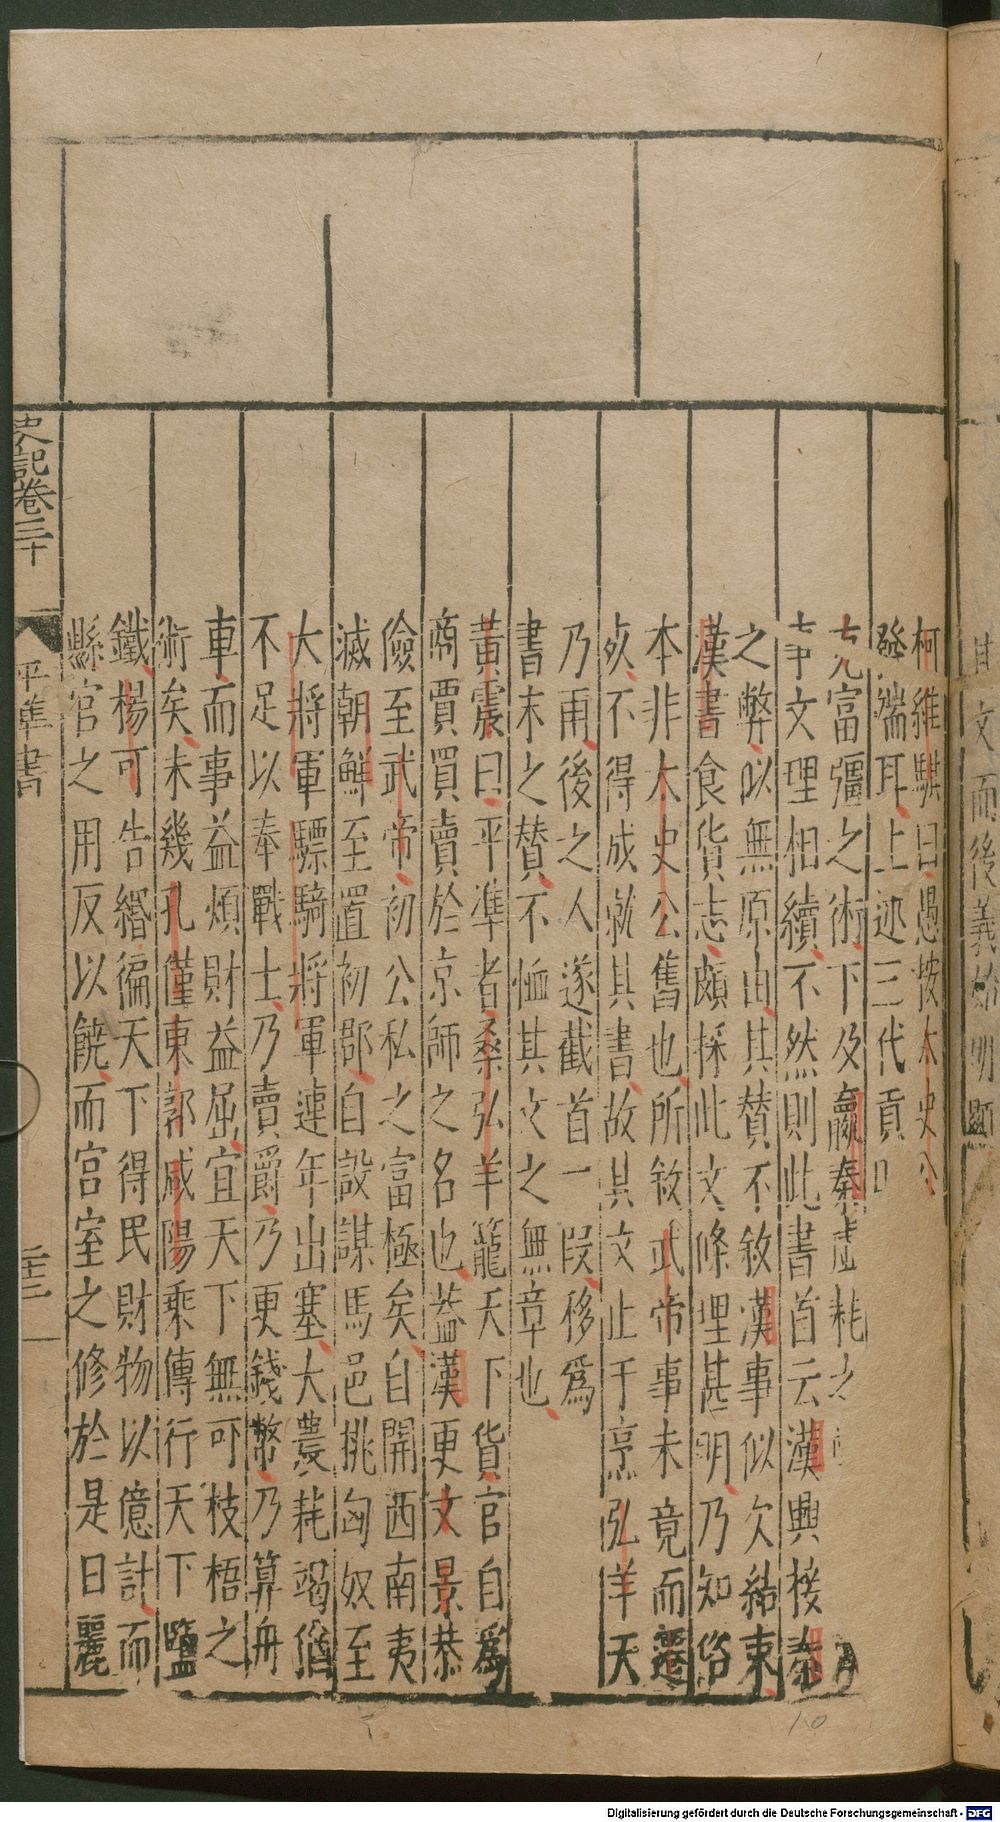 柯維騏曰愚按太史公
發端耳上述三代貢
克富彊之術下及嬴秦虛耗之
事文理相續不然則此書首云漢興接秦
之弊似無原由其贊不敘漢事似欠結束
漢書食貨志頗採此文條理甚明乃知俗
本非太史公舊也所敘武帝事未竟而遷
歿不得成就其書故其文止于烹弘羊天
乃雨後之人遂截首一段移為
書末之贊不恤其文之無章也
黃震曰平準者桑弘羊籠天下貨官自為
商賈買賣於京師之名也蓋漢更文景恭
儉至武帝初公私之富極矣自開西南夷
滅朝鮮至置初郡自設謀馬邑挑匈奴至
大將軍驃騎將軍連年出塞大農耗竭猶
不足以奉戰士乃賣爵乃更錢幣乃算舟
車而事益煩財益屈宜天下無可枝梧之
術矣未幾孔僅東郭咸陽乘傳行天下鹽
鐵楊可告緡徧天下得民財物以億計而
縣官之用反以饒而宮室之修於是日麗
史記卷三十
平準書
二十三
甘文而後義始明題
10
Digitalisierung gefördert durch die Deutsche Forschungsgemeinschaft - DFG